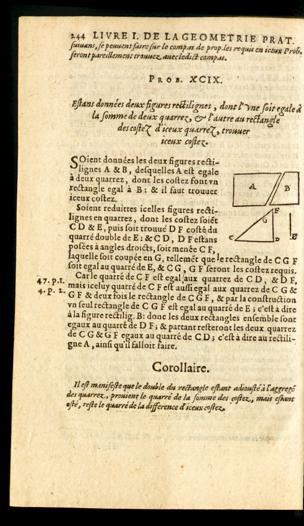 244 LIVRE I. DE LA GEOMETRIE PRAT.
suiuans, se peuuent faire sur le compas de prop. les requis en iceux Prob.
seront pareillement trouuez, auec ledict compas.
PROB. XCIX.
Estans données deux figures rectilignes, dont l'vne soit egale à
la somme de deux quarrez, & l'autre au rectangle
des costez d'iceux quarrez, trouuer
iceux costez.
SOient données les deux figures recti-
lignes A & B, desquelles A est egale
à deux quarrez, dont les costez font vn
rectangle egal à B: & il faut trouuer
iceux costez.
Soient reduittes icelles figures recti-
lignes en quarrez, dont les costez soiẽt
CD & E, puis soit trouué DF costé du
quarré double de E: & CD, DF estans
posées à angles droicts, soit menée CF,
laquelle soit coupée en G, rellemẽt que le rectangle de CGF
soit egal au quarré de E, & CG, GF seront les costez requis.
Car le quarré de CF est egal aux quarrez de CD, & DF,
47. p. 1.
mais iceluy quarré de CF est aussi egal aux quarrez de CG &
4. p. 2.
GF & deux fois le rectangle de CGF, & par la construction
vn seul rectangle de CGF est egal au quarré de E; c'est à dire
à la figure rectilig. B: donc les deux rectangles ensemble sont
egaux au quarré de DF; & partant resteront les deux quarrez
de CG & GF egaux au quarré de CD; c'est à dire au rectili-
gne A, ainsi qu'il falloit faire.
A
B
F
G
C
D
E
Corollaire.
Il est manifeste que le double du rectangle estant adiousté à l'aggregé
des quarrez, prouient le quarré de la somme des costez, mais estant
osté, reste le quarré de la difference d'iceux costez.